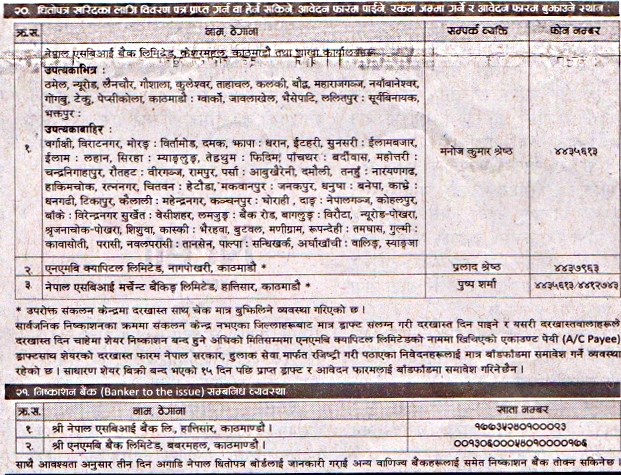 २०. धितोपत्र खरिदका लागि विवरण पत्र प्राप्त गर्न वा हेर्न सकिने, आवेदन फारम पाईने, रकम जम्मा गर्ने र आवेदन फारम बुझाउने स्थान :
क्र.स. नाम, ठेगाना सम्पर्क व्यक्ति फोन नम्बर
नेपाल एसबिआई बैंक लिमिटेड, केशरमहल, काठमाडौं तथा शाखा कार्यालयहरू
उपत्यकाभित्र :
ठमेल, न्यूरोड, लैनचौर, गौशाला, कुलेश्वर, ताहाचल, कलंकी, बौद्ध, महाराजगञ्ज, नयाँबानेश्वर,
गोंगबु, टेकु, पेप्सीकोला, काठमाडौं : ग्वार्को, जावलाखेल, भैंसेपाटि, ललितपुर : सूर्यबिनायक,
भक्तपुर :
उपत्यकाबाहिर :
१. वर्गाछी, विराटनगर, मोरङ : विर्तामोड, दमक, झापा : धरान, ईटहरी, सुनसरी : ईलामबजार, मनोज कुमार श्रेष्ठ ४४३५६१३
ईलाम : लहान, सिरहा : म्याङलुङ, तेह्रथुम : फिदिम, पाँचथर : बर्दीवास, महोत्तरी :
चन्द्रनिगाहापुर, रौतहट : वीरगञ्ज, रामपुर, पर्सा : आबुखैरेनी, दमौली, तनहुँ : नारायणगढ,
हाकिमचोक, रत्ननगर, चितवन : हेटौडा, मकवानपुर : जनकपुर, धनुषा : बनेपा, काभ्रे :
धनगढी, टिकापुर, कैलाली : महेन्द्रनगर, कञ्चनपुर : घोराही, दाङ : नेपालगञ्ज, कोहलपुर,
बाँके : विरेन्द्रनगर सुर्खेत : वेसीशहर, लमजुङ : बैंक रोड, बागलुङ : विरौटा, न्यूरोड-पोखरा,
श्रृजनाचोक-पोखरा, शिशुवा, कास्की : भैरहवा, बुटवल, मणीग्राम, रूपन्देही : तमघास, गुल्मी :
कावासोती, परासी, नवलपरासी : तानसेन, पाल्पा : सन्धिखर्क, अर्घाखाँची : वालिङ, स्याङजा
२. एनएमबि क्यापिटल लिमिटेड, नागपोखरी, काठमाडौं * प्रलाद श्रेष्ठ ४४३७९६३
३. नेपाल एसबिआई मर्चेन्ट बैंकिङ्ग लिमिटेड, हात्तिसार, काठमाडौं * पुष्प शर्मा ४४३५६१३/४४१२७४३
* उपरोक्त संकलन केन्द्रमा दरखास्त साथ चेक मात्र बुझिलिने व्यवस्था गरिएको छ ।
सार्वजनिक निष्काशनका क्रममा संकलन केन्द्र नभएका जिल्लाहरूबाट मात्र ड्राफ्ट संलग्न गरी दरखास्त दिन पाइने र यसरी दरखास्तवालाहरूले
दरखास्त दिन चाहेमा शेयर निष्काशन बन्द हुने अघिको मितिसम्ममा एनएमबि क्यापिटल लिमिटेडको नाममा खिचिएको एकाउण्ट पेयी (A/C Payee)
ड्राफ्टसाथ शेयरको दरखास्त फारम नेपाल सरकार, हुलाक सेवा मार्फत रजिष्ट्री गरी पठाएका निवेदनहरूलाई मात्र बाँडफाँडमा समावेश गर्ने व्यवस्था
रहेको छ । साधारण शेयर बिक्री बन्द भएको १५ दिन पछि प्राप्त ड्राफ्ट र आवेदन फारमलाई बाँडफाँडमा समावेश गरिनेछैन ।
२१. निष्काशन बैंक (Banker to the issue) सम्बनिध व्यवस्था
क्र.स. नाम, ठेगाना खाता नम्बर
१ श्री नेपाल एसबिआई बैंक लि., हात्तिसार, काठमाण्डौ । १७७३५२४०१००००२३
२. श्री एनएमबि बैंक लिमिटेड, बबरमहल, काठमाण्डौ । ००१३०६०००५४०१०००००१७६
साथै आवश्यता अनुसार तीन दिन अगाडि नेपाल धितोपत्र बोर्डलाई जानकारी गराई अन्य वाणिज्य बैंकहरूलाई समेत निष्काशन बैंक तोक्न सकिनेछ ।